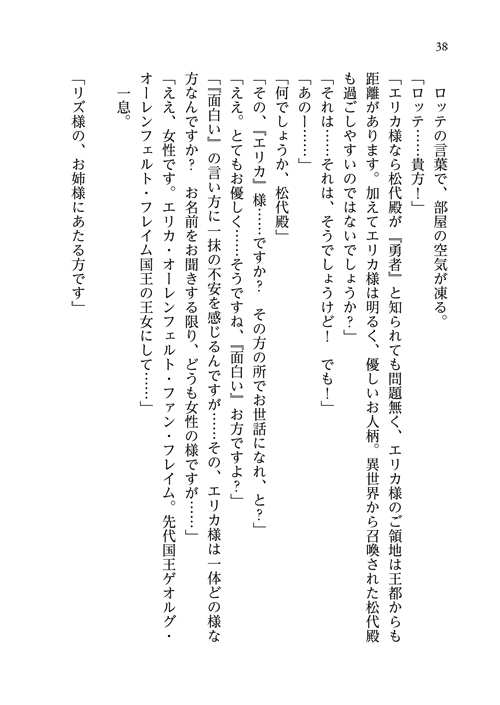 38
ロッテの言葉で、部屋の空気が凍る。
「ロッテ……貴方！」
「エリカ様なら松代殿が『勇者』と知られても問題無く、エリカ様のご領地は王都からも
距離があります。加えてエリカ様は明るく、優しいお人柄。異世界から召喚された松代殿
も過ごしやすいのではないでしょうか？」
「それは……それは、そうでしょうけど！　でも！」
「あのー……」
「何でしょうか、松代殿」
「その、『エリカ』様……ですか？　その方の所でお世話になれ、と？」
「ええ。とてもお優しく……そうですね、『面白い』お方ですよ？」
「『面白い』の言い方に一抹の不安を感じるんですが……その、エリカ様は一体どの様な
方なんですか？　お名前をお聞きする限り、どうも女性の様ですが……」
「ええ、女性です。エリカ・オーレンフェルト・ファン・フレイム。先代国王ゲオルグ・
オーレンフェルト・フレイム国王の王女にして……」
一息。
「リズ様の、お姉様にあたる方です」